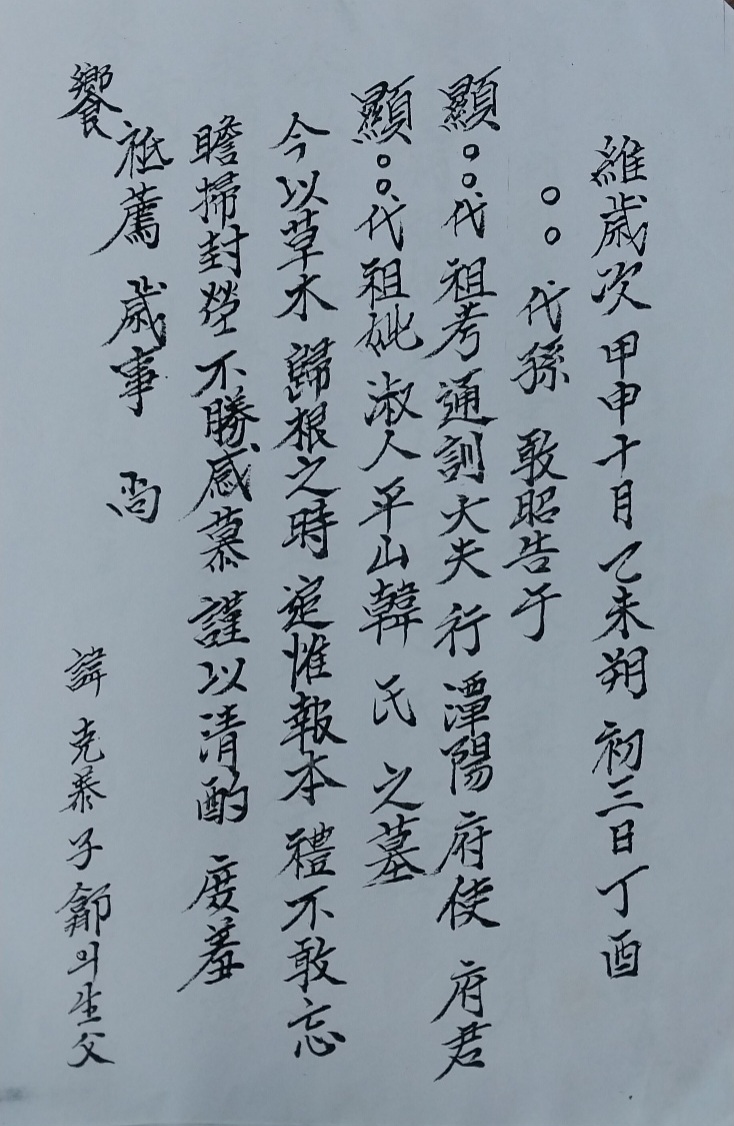 維歲次 甲申十月 乙未朔 初三日丁酉
○○ 代孫 敢昭告于
顯○○代祖考 通訓大夫 行 潭陽府使 府君
顯○○代祖妣 淑人 平山韓氏 之墓
今以草木 歸根之時 追惟報本 禮不敢忘
瞻掃封塋 不勝感慕 謹以淸酌 庶羞
祗薦 歲事 尙
饗
諱 克泰 子 의 生父